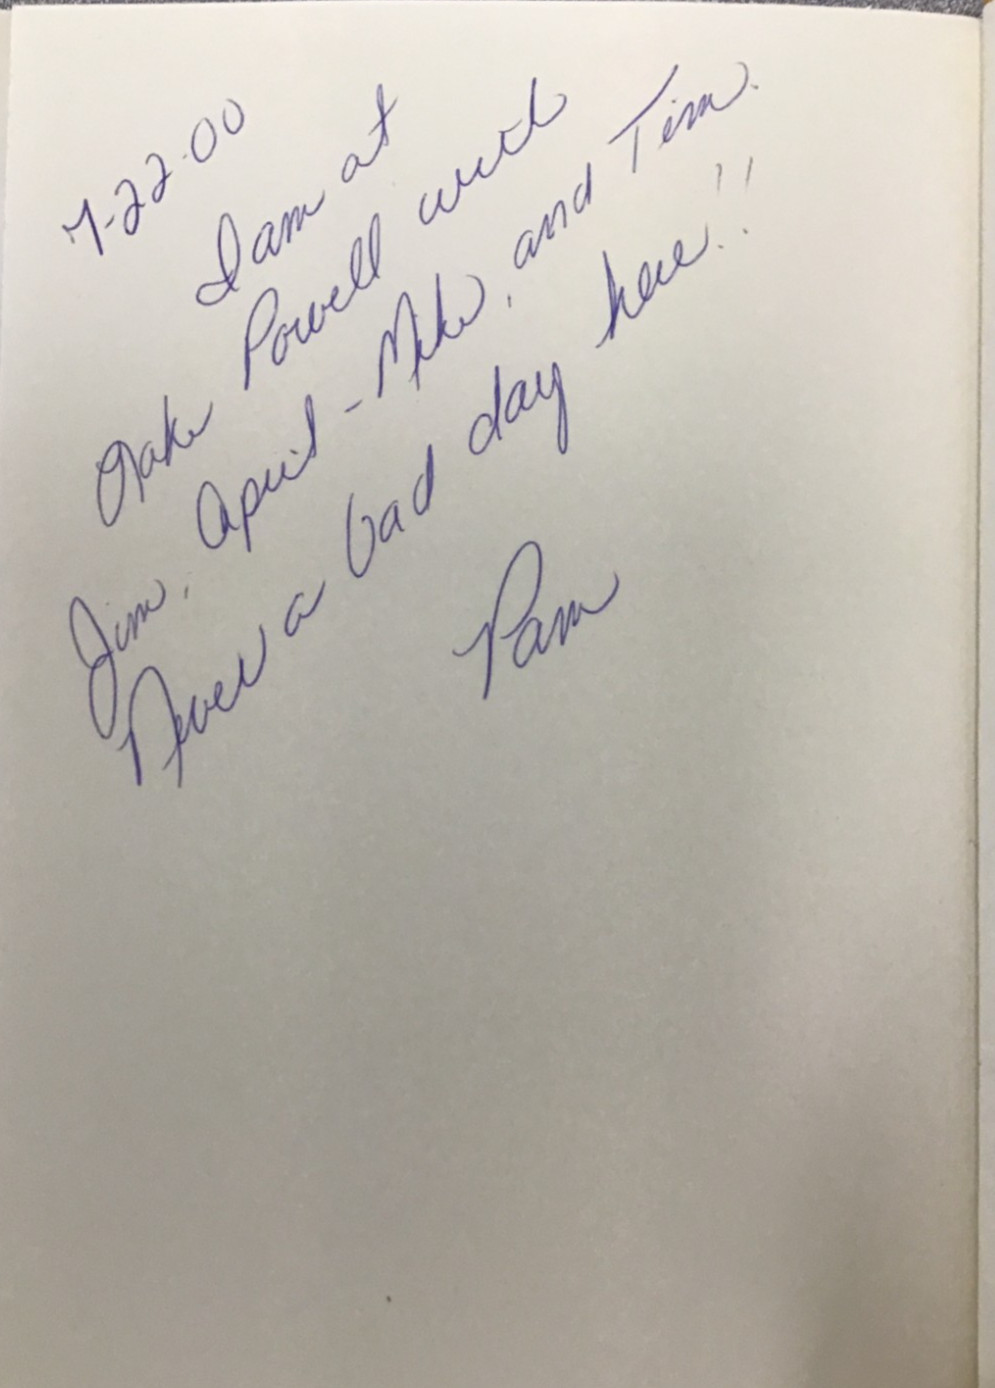 7-22-00
I am at
Lake Powell with
Jim, April - Mike, and Tim.
Never a bad day here!!
Pam